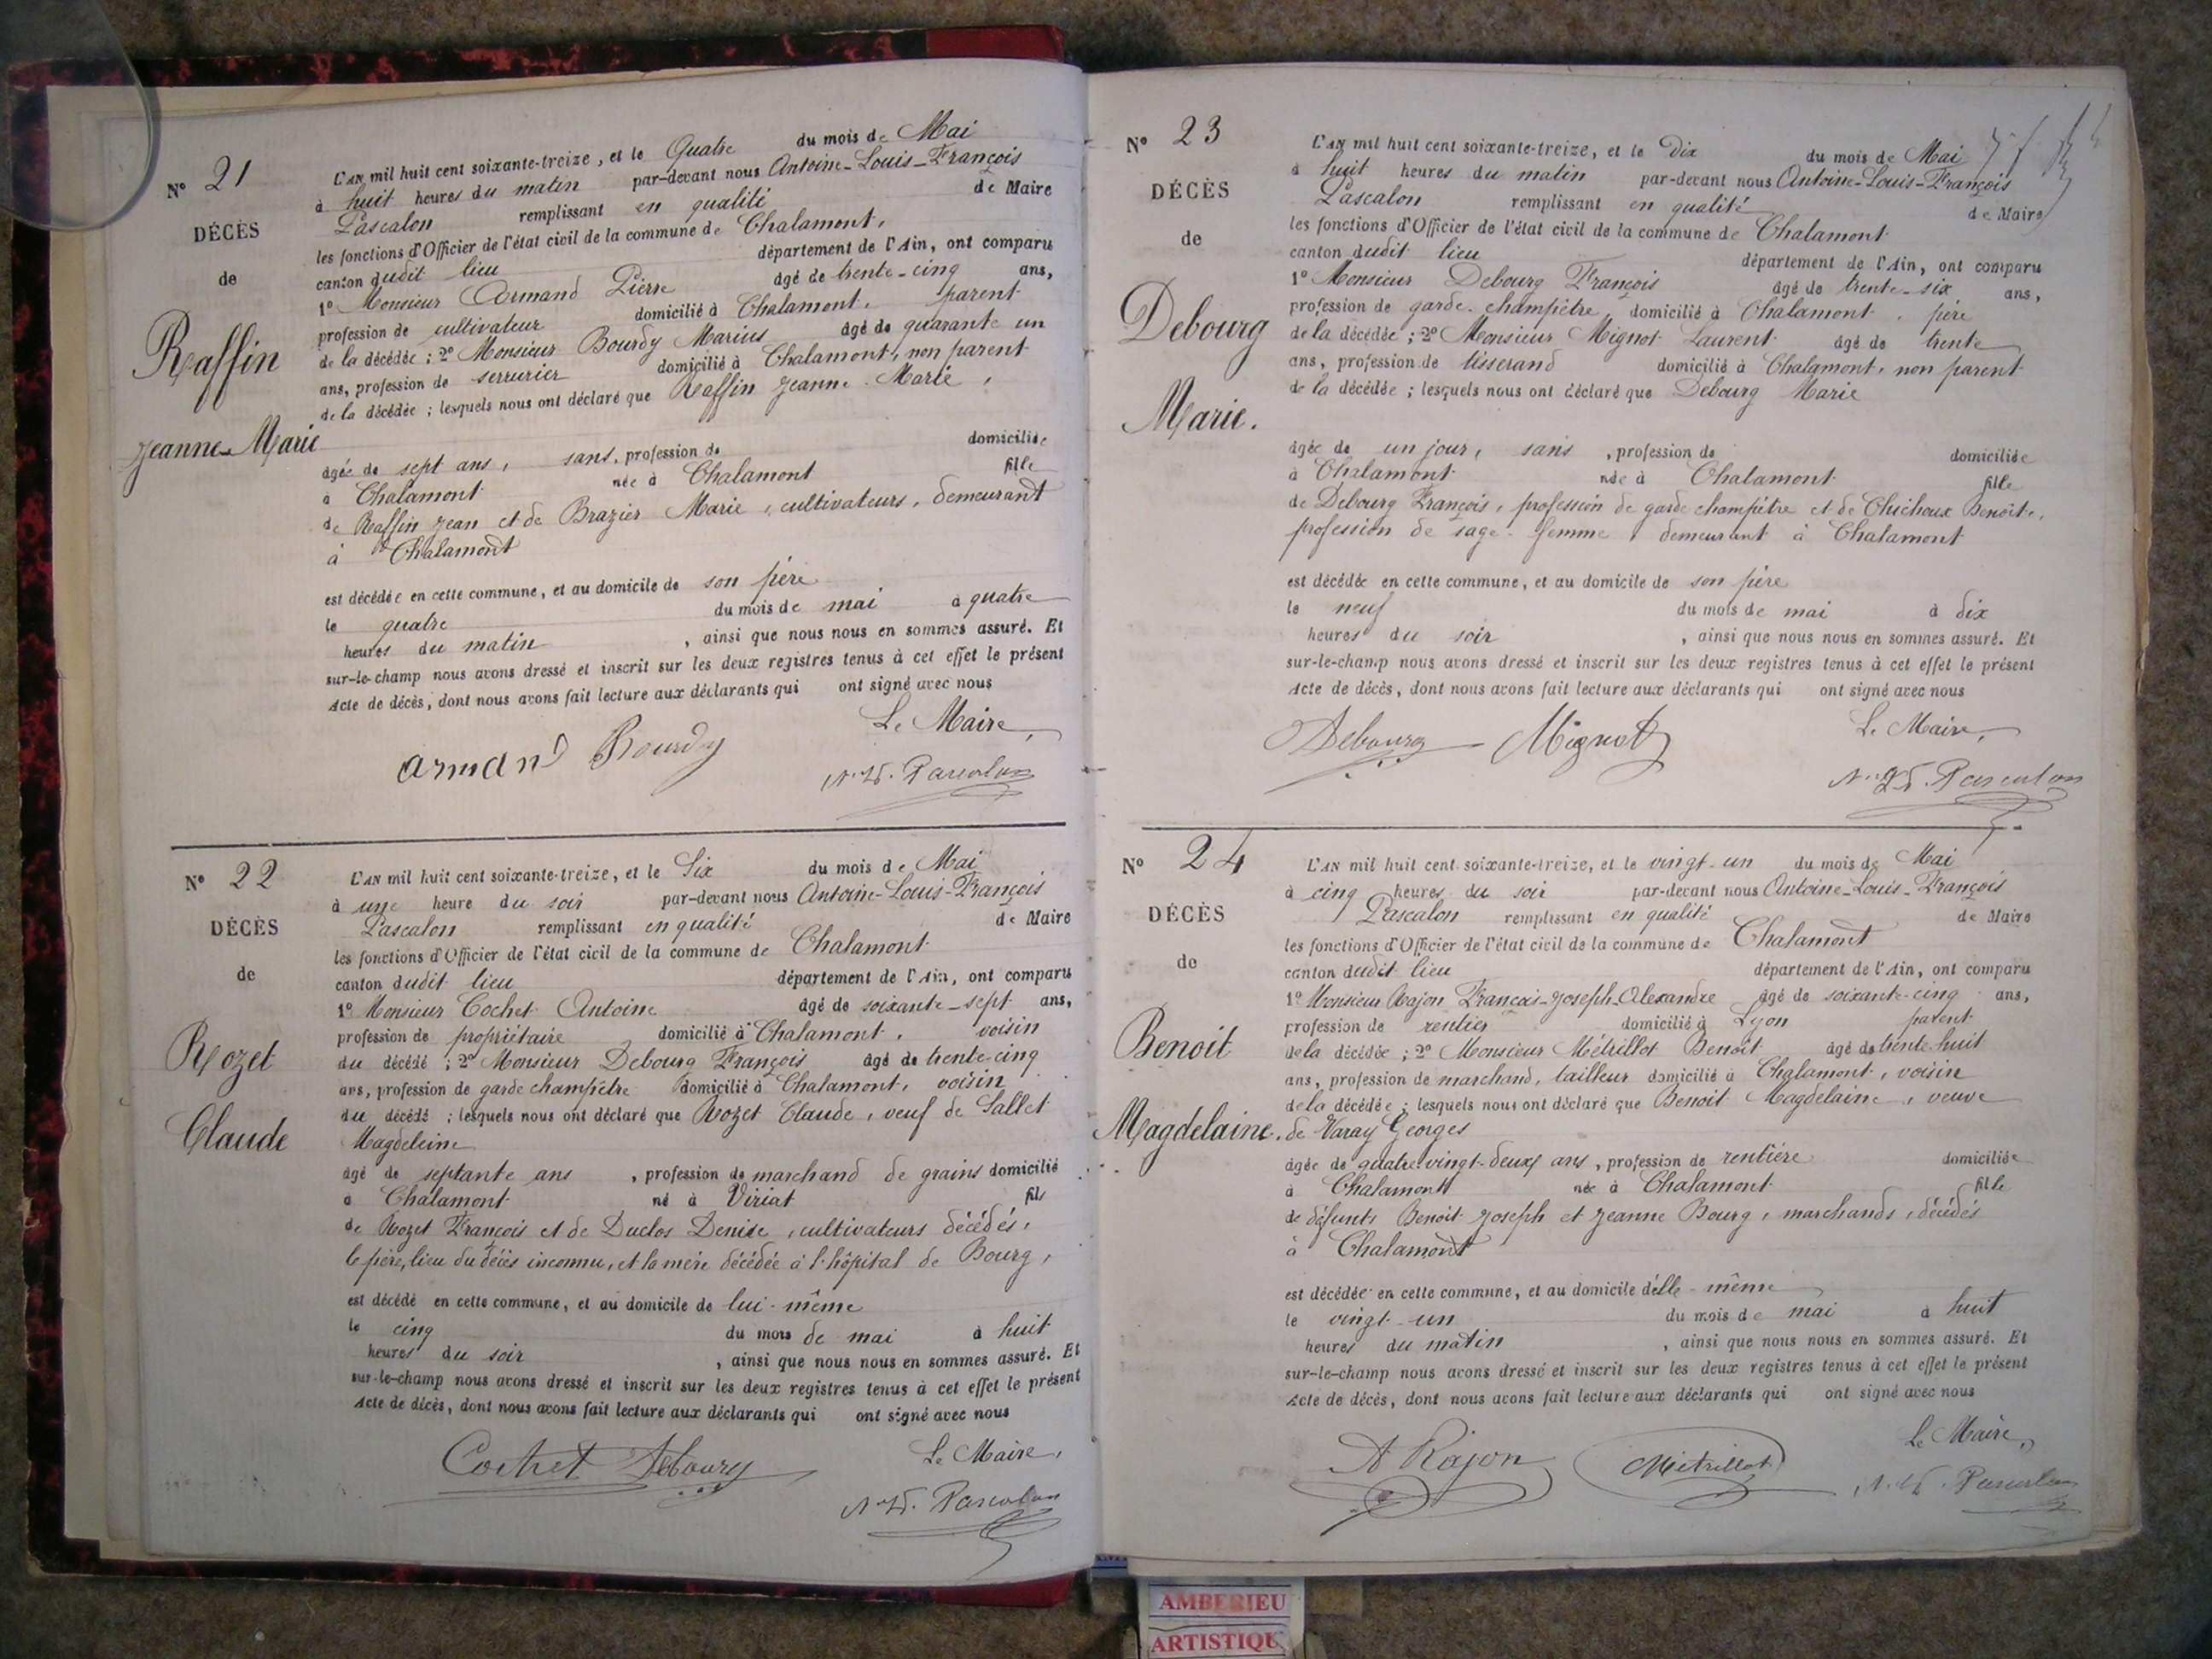 N° 21
DÉCÈS
de
Raffin
Jeanne-Marie
L'AN mil huit cent soixante-treize, et le Quatre du mois de Mai
à huit heures du matin par-devant nous Antoine-Louis-François
Pascalon remplissant en qualité de Maire
les fonctions d'Officier de l'état civil de la commune de Chalamont,
canton dudit lieu département de l'Ain, ont comparu
1° Monsieur Armand Pierre âgé de trente-cinq ans,
profession de cultivateur domicilié à Chalamont, parent
de la décédée ; 2° Monsieur Bourdy Marius âgé de quarante un
ans, profession de serrurier domicilié à Chalamont, non parent
de la décédée ; lesquels nous ont déclaré que Raffin Jeanne-Marie,
âgée de sept ans, sans, profession de domiciliée
à Chalamont née à Chalamont fille
de Raffin Jean et de Brazier Marie, cultivateurs, demeurant
à Chalamont
est décédée en cette commune, et au domicile de son père
le quatre du mois de mai à quatre
heures du matin, ainsi que nous nous en sommes assuré. Et
sur-le-champ nous avons dressé et inscrit sur les deux registres tenus à cet effet le présent
Acte de décès, dont nous avons fait lecture aux déclarants qui ont signé avec nous
Le Maire,
Armand Bourdy Pascalon
N° 22
DÉCÈS
de
Rozet
Claude
L'AN mil huit cent soixante-treize, et le Six du mois de Mai
à une heure du soir par-devant nous Antoine-Louis-François
Pascalon remplissant en qualité de Maire
les fonctions d'Officier de l'état civil de la commune de Chalamont
canton dudit lieu département de l'Ain, ont comparu
1° Monsieur Cochet Antoine âgé de soixante-sept ans,
profession de propriétaire domicilié à Chalamont, voisin
du décédé ; 2° Monsieur Debourg François âgé de trente-cinq
ans, profession de garde champêtre domicilié à Chalamont, voisin
du décédé ; lesquels nous ont déclaré que Rozet Claude, veuf de Sallet
Magdeleine
âgé de septante ans, profession de marchand de grains domicilié
à Chalamont né à Viriat fils
de Rozet François et de Duclos Denise, cultivateurs décédés,
le père, lieu du décès inconnu, et la mère décédée à l'hôpital de Bourg,
est décédé en cette commune, et au domicile de lui-même
le cinq du mois de mai à huit
heures du soir, ainsi que nous nous en sommes assuré. Et
sur-le-champ nous avons dressé et inscrit sur les deux registres tenus à cet effet le présent
Acte de décès, dont nous avons fait lecture aux déclarants qui ont signé avec nous
Le Maire,
Cochet Debourg Pascalon
N° 23
DÉCÈS
de
Debourg
Marie.
L'AN mil huit cent soixante-treize, et le Dix du mois de Mai
à huit heures du matin par-devant nous Antoine-Louis-François
Pascalon remplissant en qualité de Maire
les fonctions d'Officier de l'état civil de la commune de Chalamont
canton dudit lieu département de l'Ain, ont comparu
1° Monsieur Debourg François âgé de trente-six ans,
profession de garde-champêtre, domicilié à Chalamont, père
de la décédée ; 2° Monsieur Mignot Laurent âgé de trente
ans, profession de tisserand domicilié à Chalamont, non parent
de la décédée ; lesquels nous ont déclaré que Debourg Marie
âgée de un jour, sans, profession de domiciliée
à Chalamont née à Chalamont fille
de Debourg François, profession de garde champêtre et de Chichoux Benoîte,
profession de sage-femme, demeurant à Chalamont
est décédée en cette commune, et au domicile de son père
le neuf du mois de mai à dix
heures du soir, ainsi que nous nous en sommes assuré. Et
sur-le-champ nous avons dressé et inscrit sur les deux registres tenus à cet effet le présent
Acte de décès, dont nous avons fait lecture aux déclarants qui ont signé avec nous
Le Maire,
Debourg Mignot Pascalon
N° 24
DÉCÈS
de
Benoit
Magdelaine.
L'AN mil huit cent soixante-treize, et le vingt-un du mois de Mai
à cinq heures du soir par-devant nous Antoine-Louis-François
Pascalon remplissant en qualité de Maire
les fonctions d'Officier de l'état civil de la commune de Chalamont
canton dudit lieu département de l'Ain, ont comparu
1° Monsieur Rajon François-Joseph-Alexandre âgé de soixante-cinq ans,
profession de rentier domicilié à Lyon parent
de la décédée ; 2° Monsieur Métrillot Benoit âgé de trente-huit
ans, profession de marchand, tailleur domicilié à Chalamont, voisin
de la décédée ; lesquels nous ont déclaré que Benoit Magdelaine, veuve
de Varay Georges
âgée de quatre-vingt-deux ans, profession de rentière domiciliée
à Chalamont née à Chalamont fille
de défunts Benoit Joseph et Jeanne Bourg, marchands, décédés
à Chalamont
est décédée en cette commune, et au domicile d'elle-même
le vingt-un du mois de mai à huit
heures du matin, ainsi que nous nous en sommes assuré. Et
sur-le-champ nous avons dressé et inscrit sur les deux registres tenus à cet effet le présent
Acte de décès, dont nous avons fait lecture aux déclarants qui ont signé avec nous
Le Maire,
A Rajon Métrillot Pascalon
AMBERIEU
ARTISTIQU